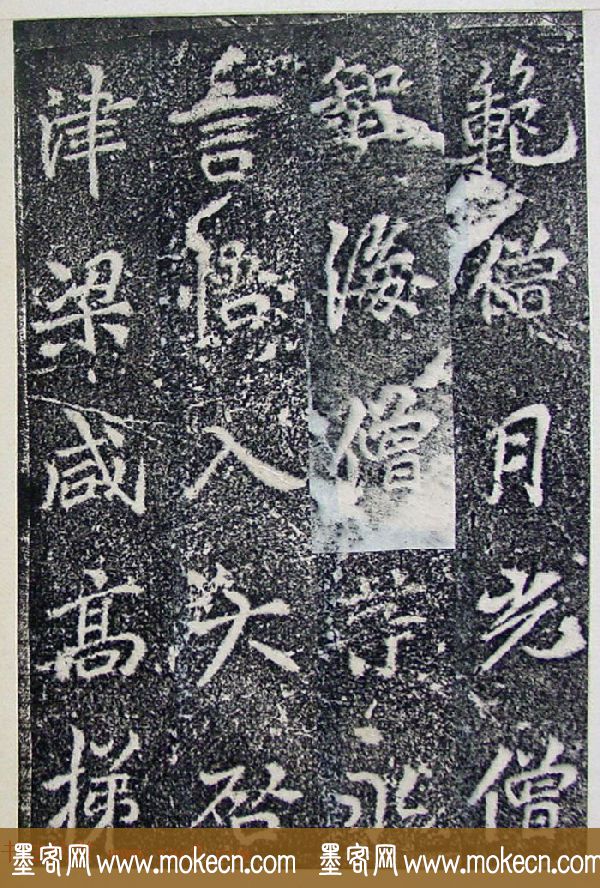 範僧月光僧
海僧等永
言悟入矢啓
津梁咸高梯
墨客网 www.mokecn.com 墨客网 www.mokecn.com